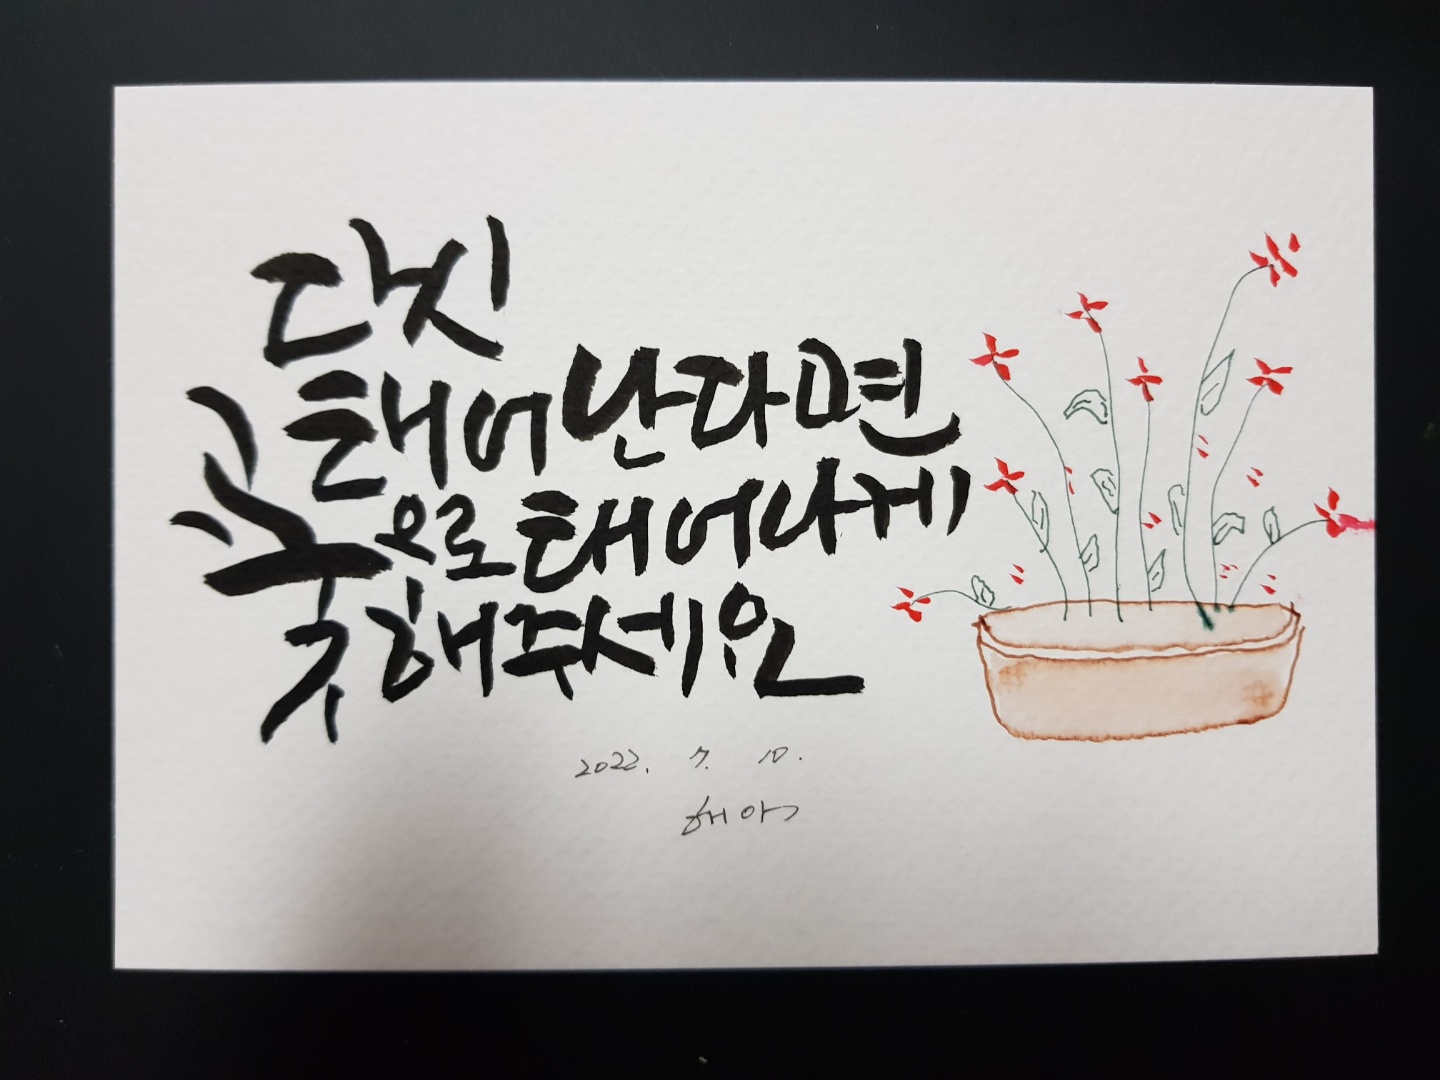 다시
태어난다면
꽃으로 태어나게
해주세요
2022. 7. 10.